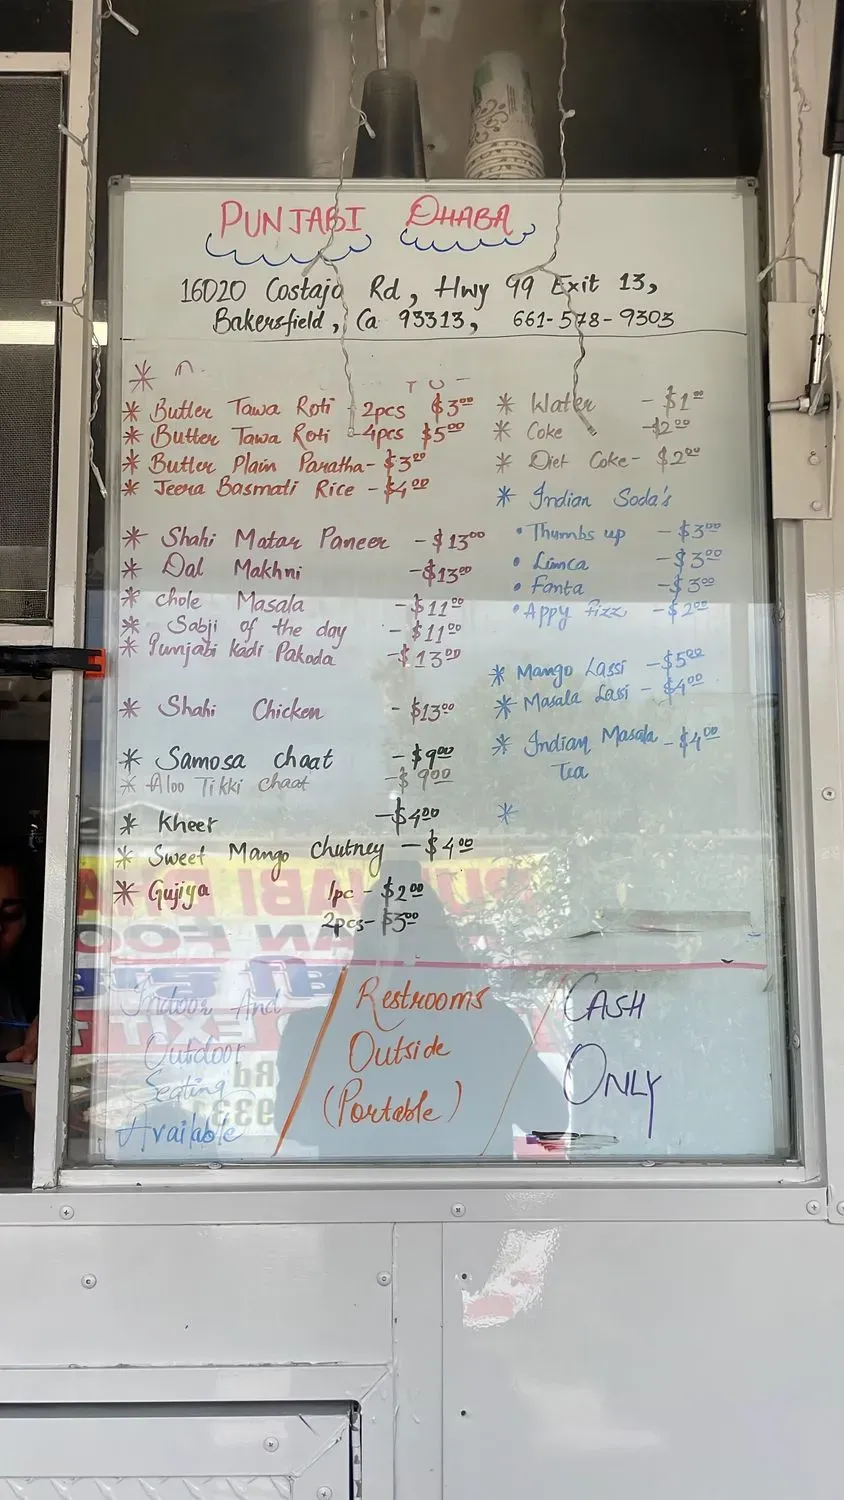 PUNJABI DHABA
16020 Costajo Rd, Hwy 99 Exit 13,
Bakersfield, Ca 93313, 661-578-9303
* Butter Tawa Roti - 2pcs $3.00
* Butter Tawa Roti - 4pcs $5.00
* Butter Plain Paratha - $3.00
* Jeera Basmati Rice - $4.00
* Shahi Matar Paneer - $13.00
* Dal Makhni - $13.00
* Chole Masala - $11.00
* Sabji of the day - $11.00
* Punjabi Kadi Pakoda - $13.00
* Shahi Chicken - $13.00
* Samosa chaat - $9.00
* Aloo Tikki chaat - $9.00
* Kheer - $4.00
* Sweet Mango Chutney - $4.00
* Gujiya 1pc - $2.00
2pcs - $3.00
* Water - $1.00
* Coke - $2.00
* Diet Coke - $2.00
* Indian Soda's
• Thumbs up - $3.00
• Limca - $3.00
• Fanta - $3.00
• Appy Fizz - $2.00
* Mango Lassi - $5.00
* Masala Lassi - $4.00
* Indian Masala - $4.00
Tea
*
Indoor And
Outdoor
Seating
Available
Restrooms
Outside
(Portable)
CASH
ONLY